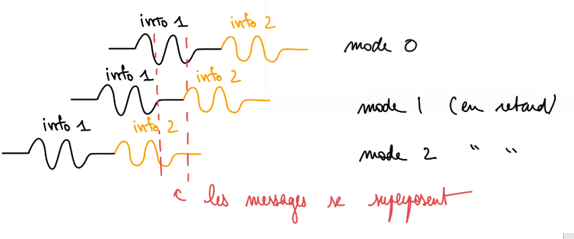 info 1 info 2
mode 0
info 1 info 2
mode 1 (en retard)
info 1 info 2
mode 2 " "
les messages se superposent